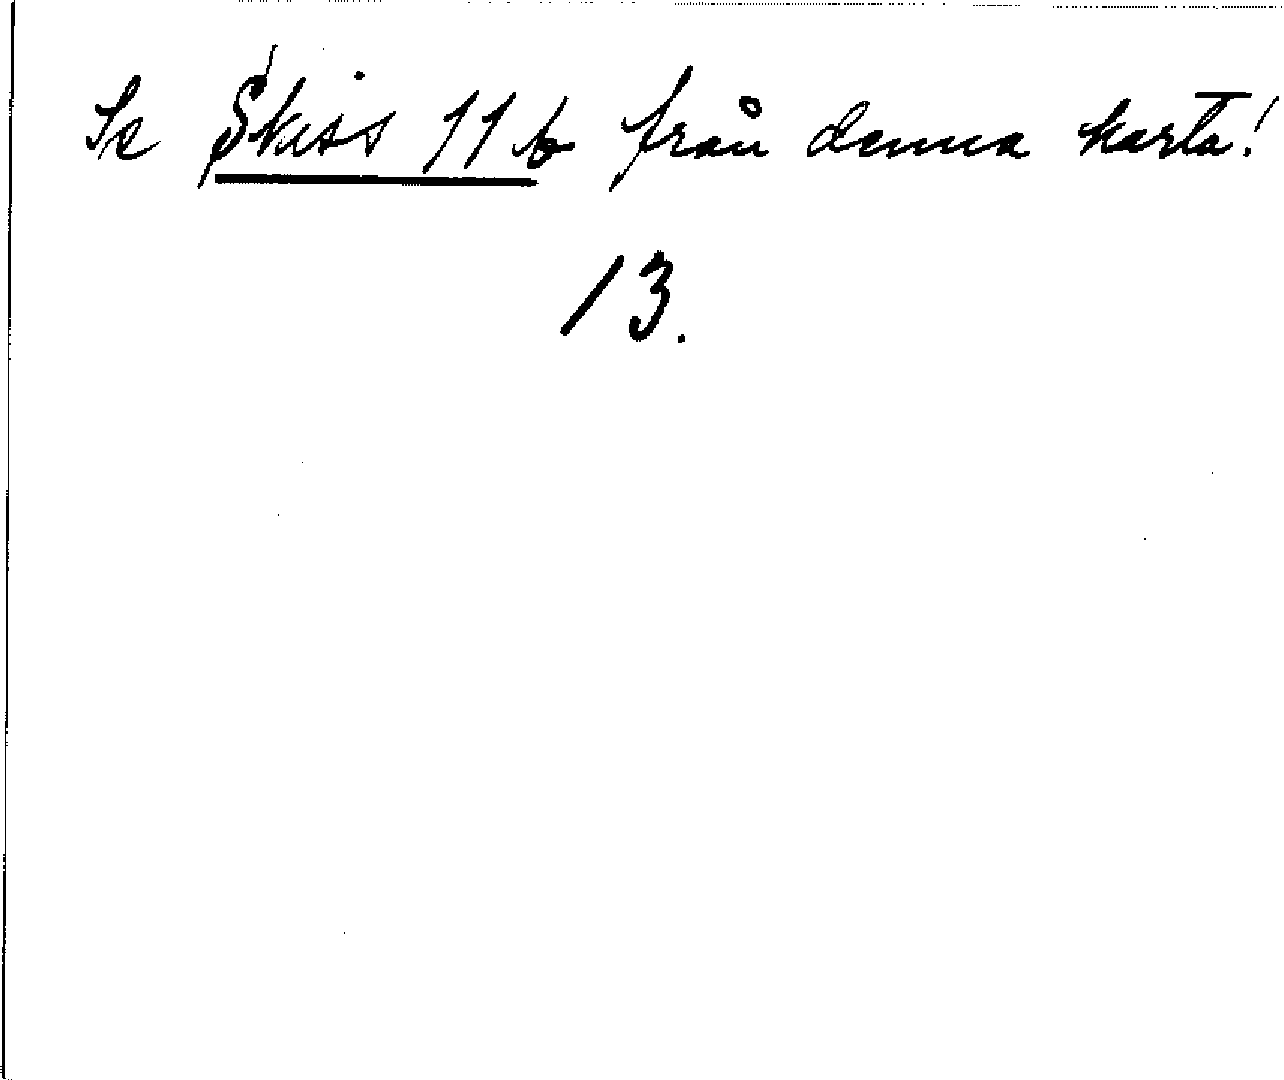 Se Skiss 11 b från denna karta!
13.